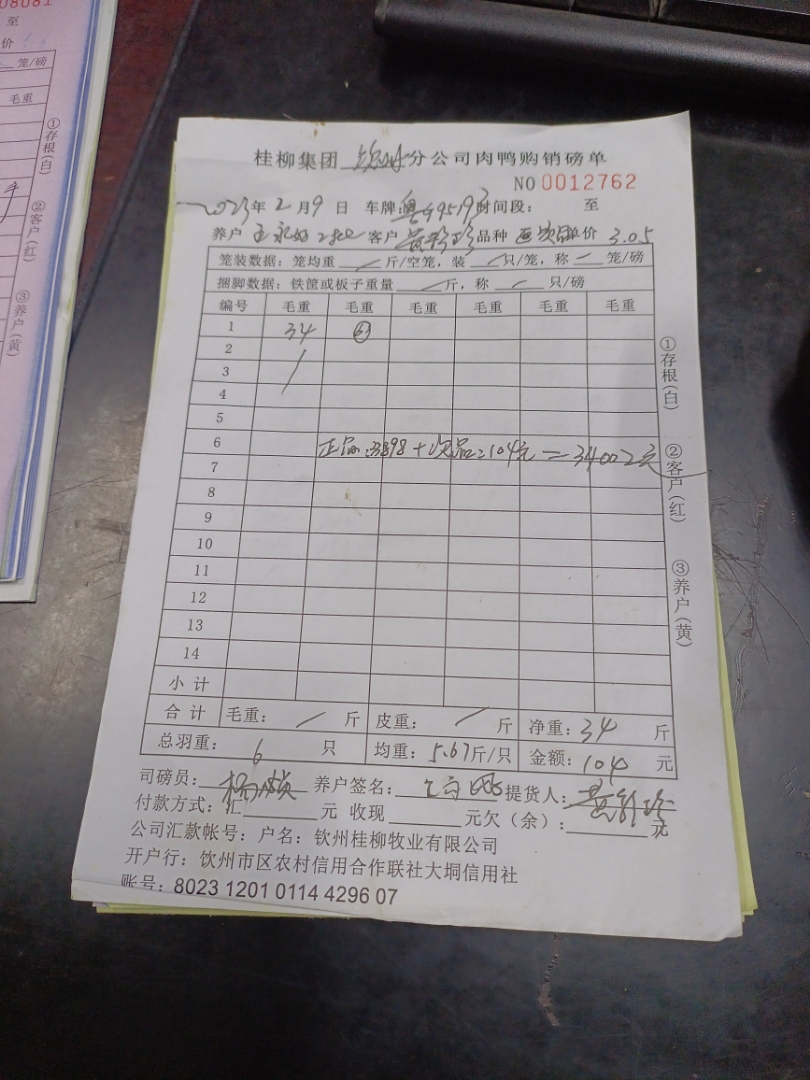 08081
至
价
笼/磅
毛重
①存根(白)
②客户(红)
③养户(黄)
桂柳集团 钦州 分公司肉鸭购销磅单
NO 0012762
2023年 2 月 9 日 车牌: 时间段: 至
养户 客户 黄彩珍 品种 单价 3.05
笼装数据: 笼均重 / 斤/空笼, 装 / 只/笼, 称 / 笼/磅
捆脚数据: 铁筐或板子重量 / 斤, 称 / 只/磅
编号 毛重 毛重 毛重 毛重 毛重 毛重
1 34 ⑥
2
3
4
5
6 正品: 33898 + 次品: 104元 = 34002元
7
8
9
10
11
12
13
14
小计
合计 毛重: / 斤 皮重: / 斤 净重: 34 斤
总羽重: 6 只 均重: 5.67斤/只 金额: 104 元
①存根(白)
②客户(红)
③养户(黄)
司磅员: 养户签名: 提货人: 黄彩珍
付款方式: 汇 元 收现 元欠(余): 元
公司汇款帐号: 户名: 钦州桂柳牧业有限公司
开户行: 饮州市区农村信用合作联社大垌信用社
账号: 8023 1201 0114 4296 07